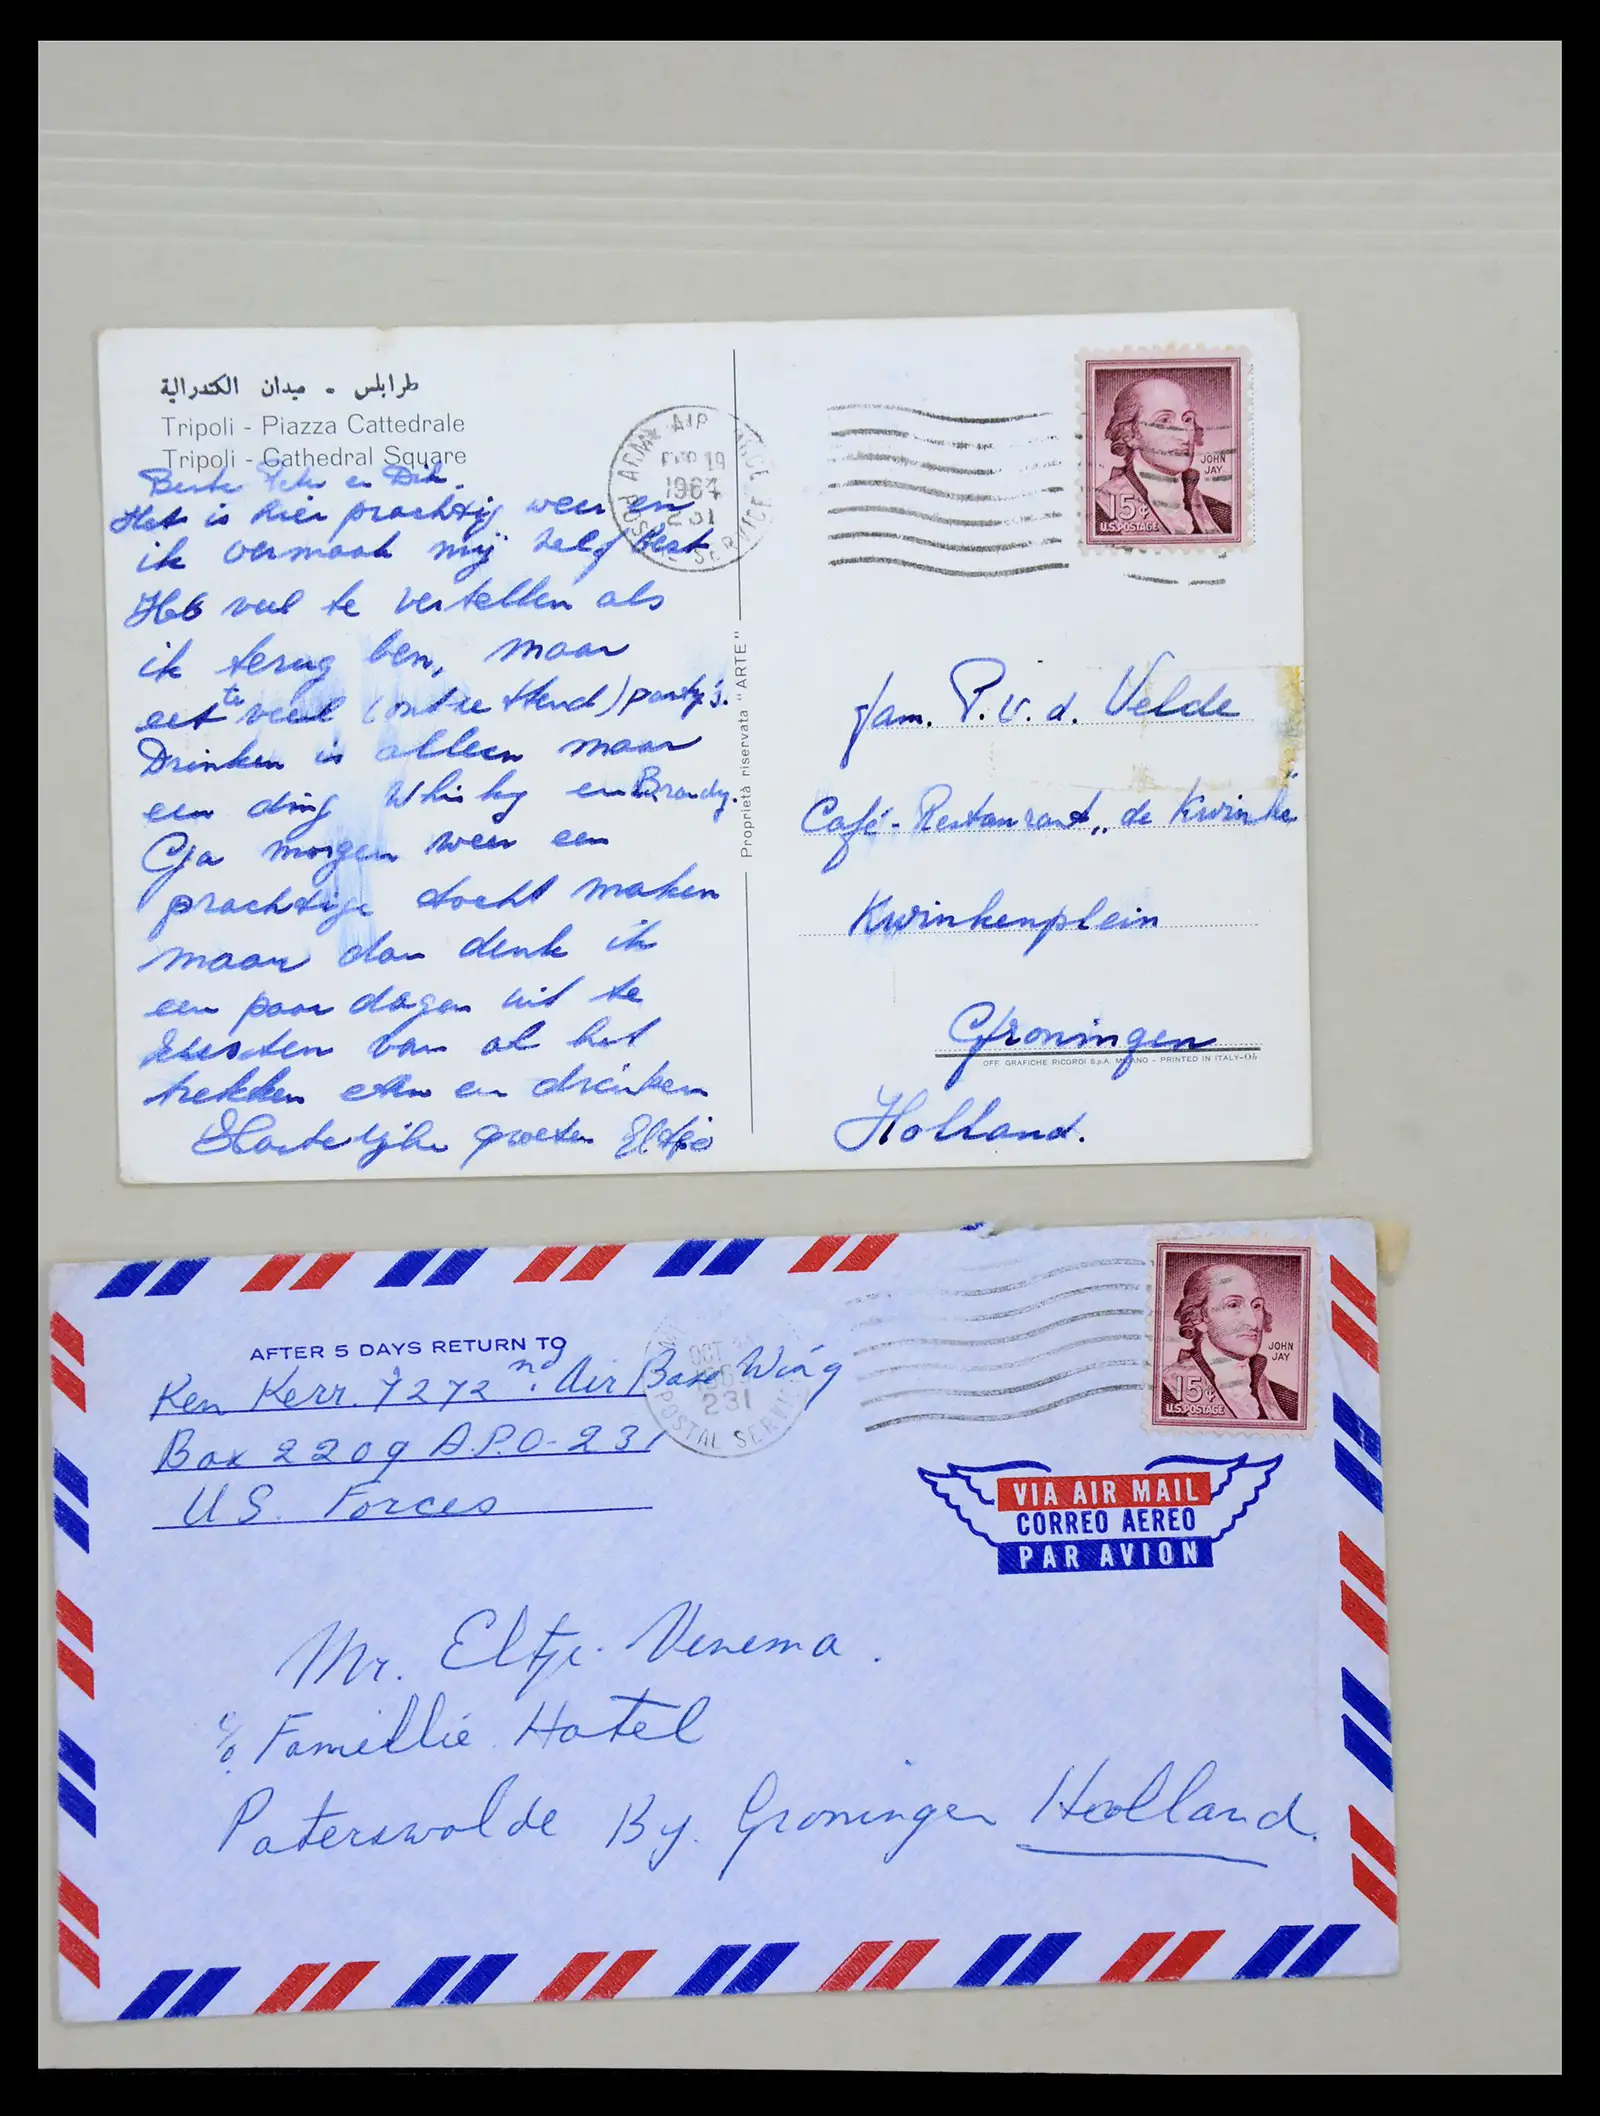 طرابلس - ميدان الكتدرالية
Tripoli - Piazza Cattedrale
Tripoli - Cathedral Square
Beste en Dik.
Het is hier prachtig weer en
ik vermaak mij zelf best
Heb veel te vertellen als
ik terug ben, maar
eet te veel party's.
Drinken is alleen maar
een ding Whisky en Brandy.
Ga morgen weer een
prachtige tocht maken
maar dan denk ik
een paar dagen uit te
rusten van al het
trekken eten en drinken
Hartelijke groeten Eltjo
ARMY AIR FORCE POSTAL SERVICE
SEP 19
1964
231
Proprietà riservata "ARTE"
JOHN JAY
15¢
U.S. POSTAGE
fam. P. v. d. Velde
Café - Restaurant „de Kwinke"
Kwinkenplein
Groningen
OFF. GRAFICHE RICORDI S.p.A. MILANO - PRINTED IN ITALY-
Holland.
AFTER 5 DAYS RETURN TO
Ken Kerr. 7272nd. Air Base Wing
Box 2209 A.P.O-231
U.S. Forces
OCT
196
231
POSTAL SERVICE
JOHN JAY
15¢
U.S. POSTAGE
VIA AIR MAIL
CORREO AEREO
PAR AVION
Mr. Eltje. Venema.
c/o Famillie Hotel
Paterswolde By. Groningen Holland.